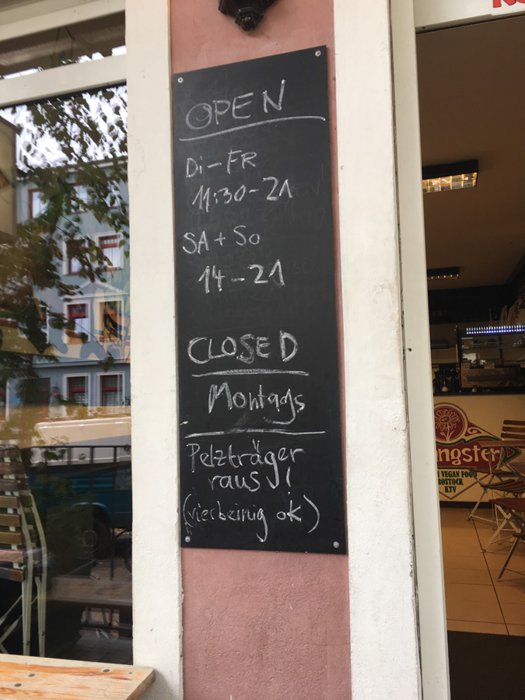 OPEN
Di-FR
11:30-21
SA + So
14-21
CLOSED
Montags
Pelzträger
raus!
(vierbeinig ok)
ngster
VEGAN FOOD
ROSTOCK
KTV